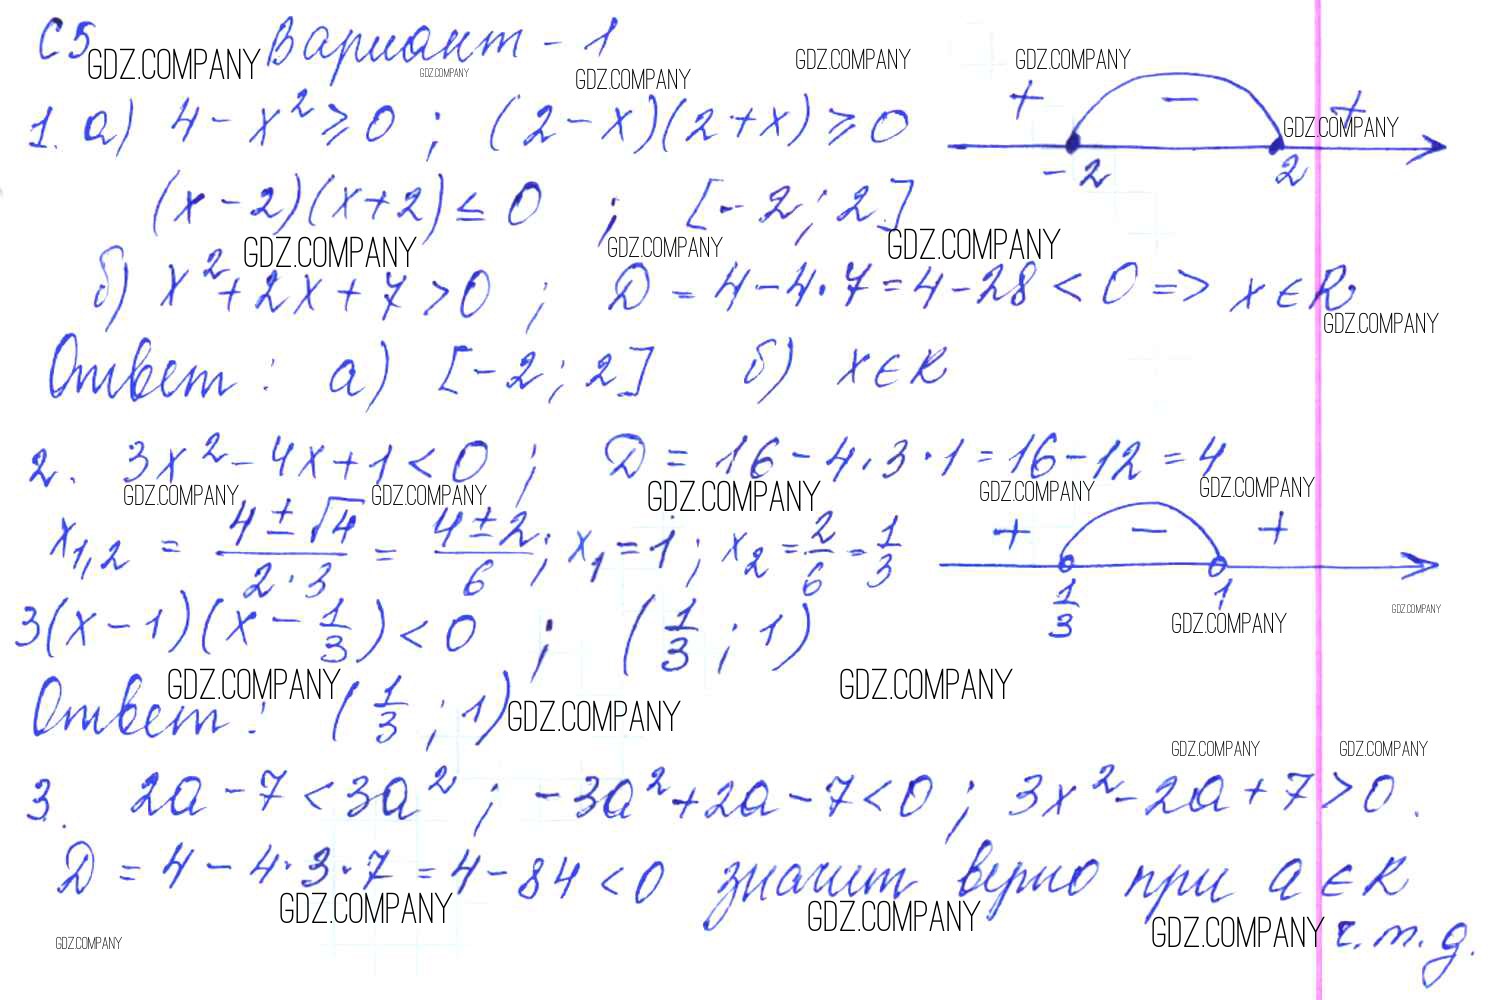 С5 Вариант - 1
GDZ.COMPANY GDZ.COMPANY GDZ.COMPANY GDZ.COMPANY GDZ.COMPANY
1. а) 4 - x² ≥ 0 ; (2 - x)(2 + x) ≥ 0
+ - +
GDZ.COMPANY
-2 2
(x - 2)(x + 2) ≤ 0 ; [-2; 2]
GDZ.COMPANY GDZ.COMPANY GDZ.COMPANY
б) x² + 2x + 7 > 0 ; D = 4 - 4·7 = 4 - 28 < 0 => x ∈ R
GDZ.COMPANY
Ответ: а) [-2; 2] б) x ∈ R
2. 3x² - 4x + 1 < 0 ; D = 16 - 4·3·1 = 16 - 12 = 4
GDZ.COMPANY GDZ.COMPANY GDZ.COMPANY GDZ.COMPANY GDZ.COMPANY
x₁,₂ = (4 ± √4)/(2·3) = (4 ± 2)/6 ; x₁ = 1 ; x₂ = 2/6 = 1/3
+ - +
1/3 1
GDZ.COMPANY GDZ.COMPANY
3(x - 1)(x - 1/3) < 0 ; (1/3 ; 1)
GDZ.COMPANY GDZ.COMPANY
Ответ: (1/3 ; 1)
GDZ.COMPANY GDZ.COMPANY GDZ.COMPANY
3. 2a - 7 < 3a² ; -3a² + 2a - 7 < 0 ; 3x² - 2a + 7 > 0.
D = 4 - 4·3·7 = 4 - 84 < 0 значит верно при a ∈ R
GDZ.COMPANY GDZ.COMPANY GDZ.COMPANY
ч.т.д.
GDZ.COMPANY